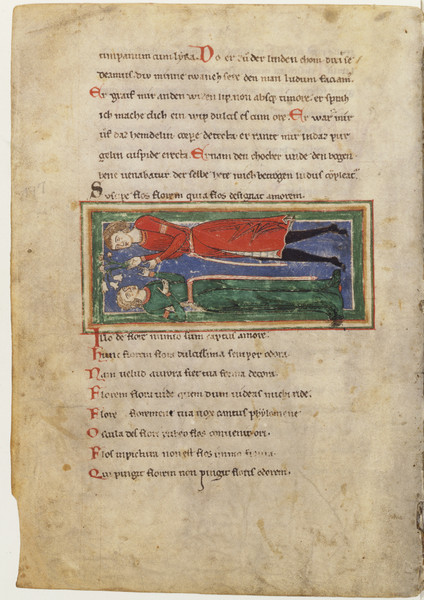 timpanum cum lyra. Do er zů der linden chom dixit se
deamus. div minne twanch sere den man ludum faciam.
Er graif mir an den wizen lip. non absq; timore. er sprah
ich mache dich ein wip dulcis es cum ore. Er warf mir
uf daz hemdelin corpore detecta er rante mir in daz pur
gelin cuspide erecta. Er nam den chocher unde den bogen
bene venabatur der selbe hete mich betrogen ludus
Suscipe flos florem quia flos designat amorem.
Illo de flore nimio sum captus amore.
Hunc florem flora dulcissima semper odora.
Nam velud aurora fiet tua forma decora.
Florem flora vide quem dum videas michi ride.
Flore tua vox cantus phylomene
Oscula des flori rubeo flos convenit ori.
Flos in pictura non est flos immo figura.
Qui pingit florem non pingit floris odorem.